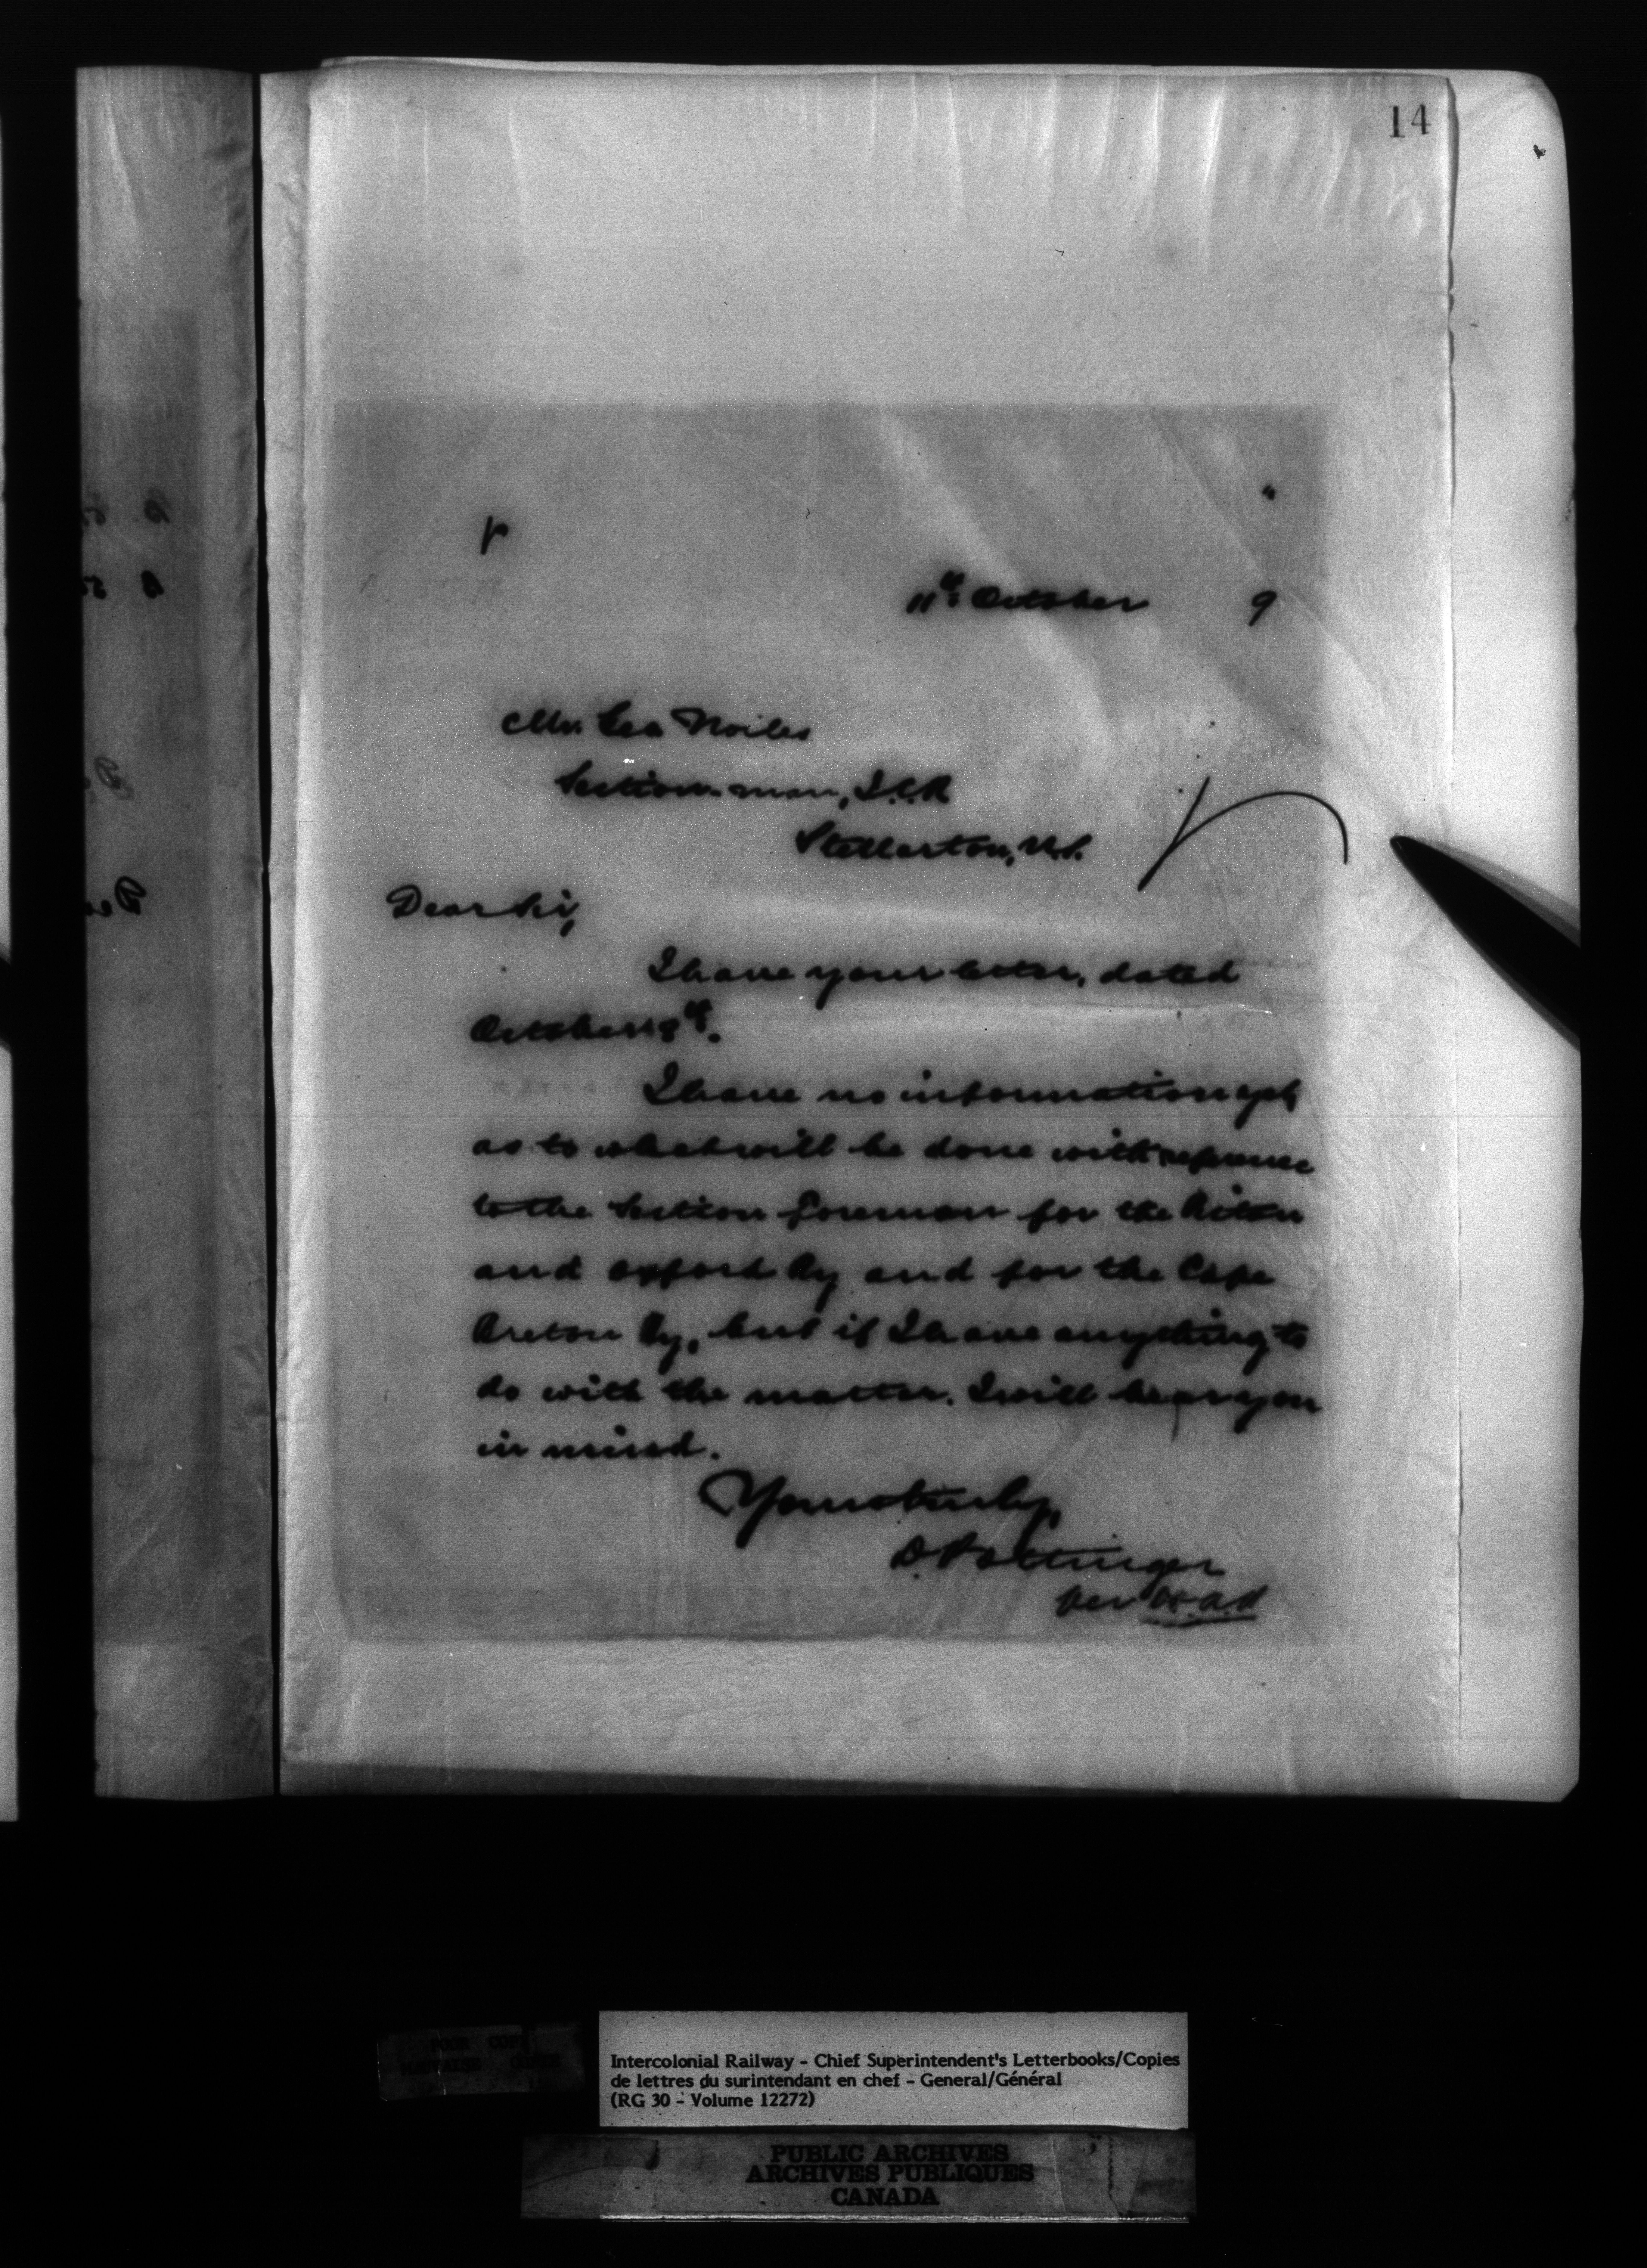 14
11th October 9
Mr. Geo Noiles
Section-man, I.C.R
Stellarton, N.S.
Dear Sir,
I have your letter, dated
October 8th.
I have no information yet
as to what will be done with reference
to the Section foreman for the Pictou
and Oxford Ry and for the Cape
Breton Ry, but if I have anything to
do with the matter. I will bear you
in mind.
Yours truly,
D. Pottinger
per
Intercolonial Railway - Chief Superintendent's Letterbooks/Copies
de lettres du surintendant en chef - General/Général
(RG 30 - Volume 12272)
PUBLIC ARCHIVES
ARCHIVES PUBLIQUES
CANADA